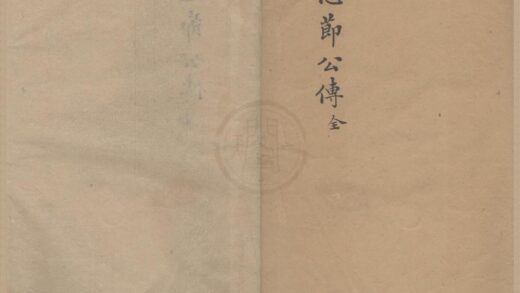 節公傳全